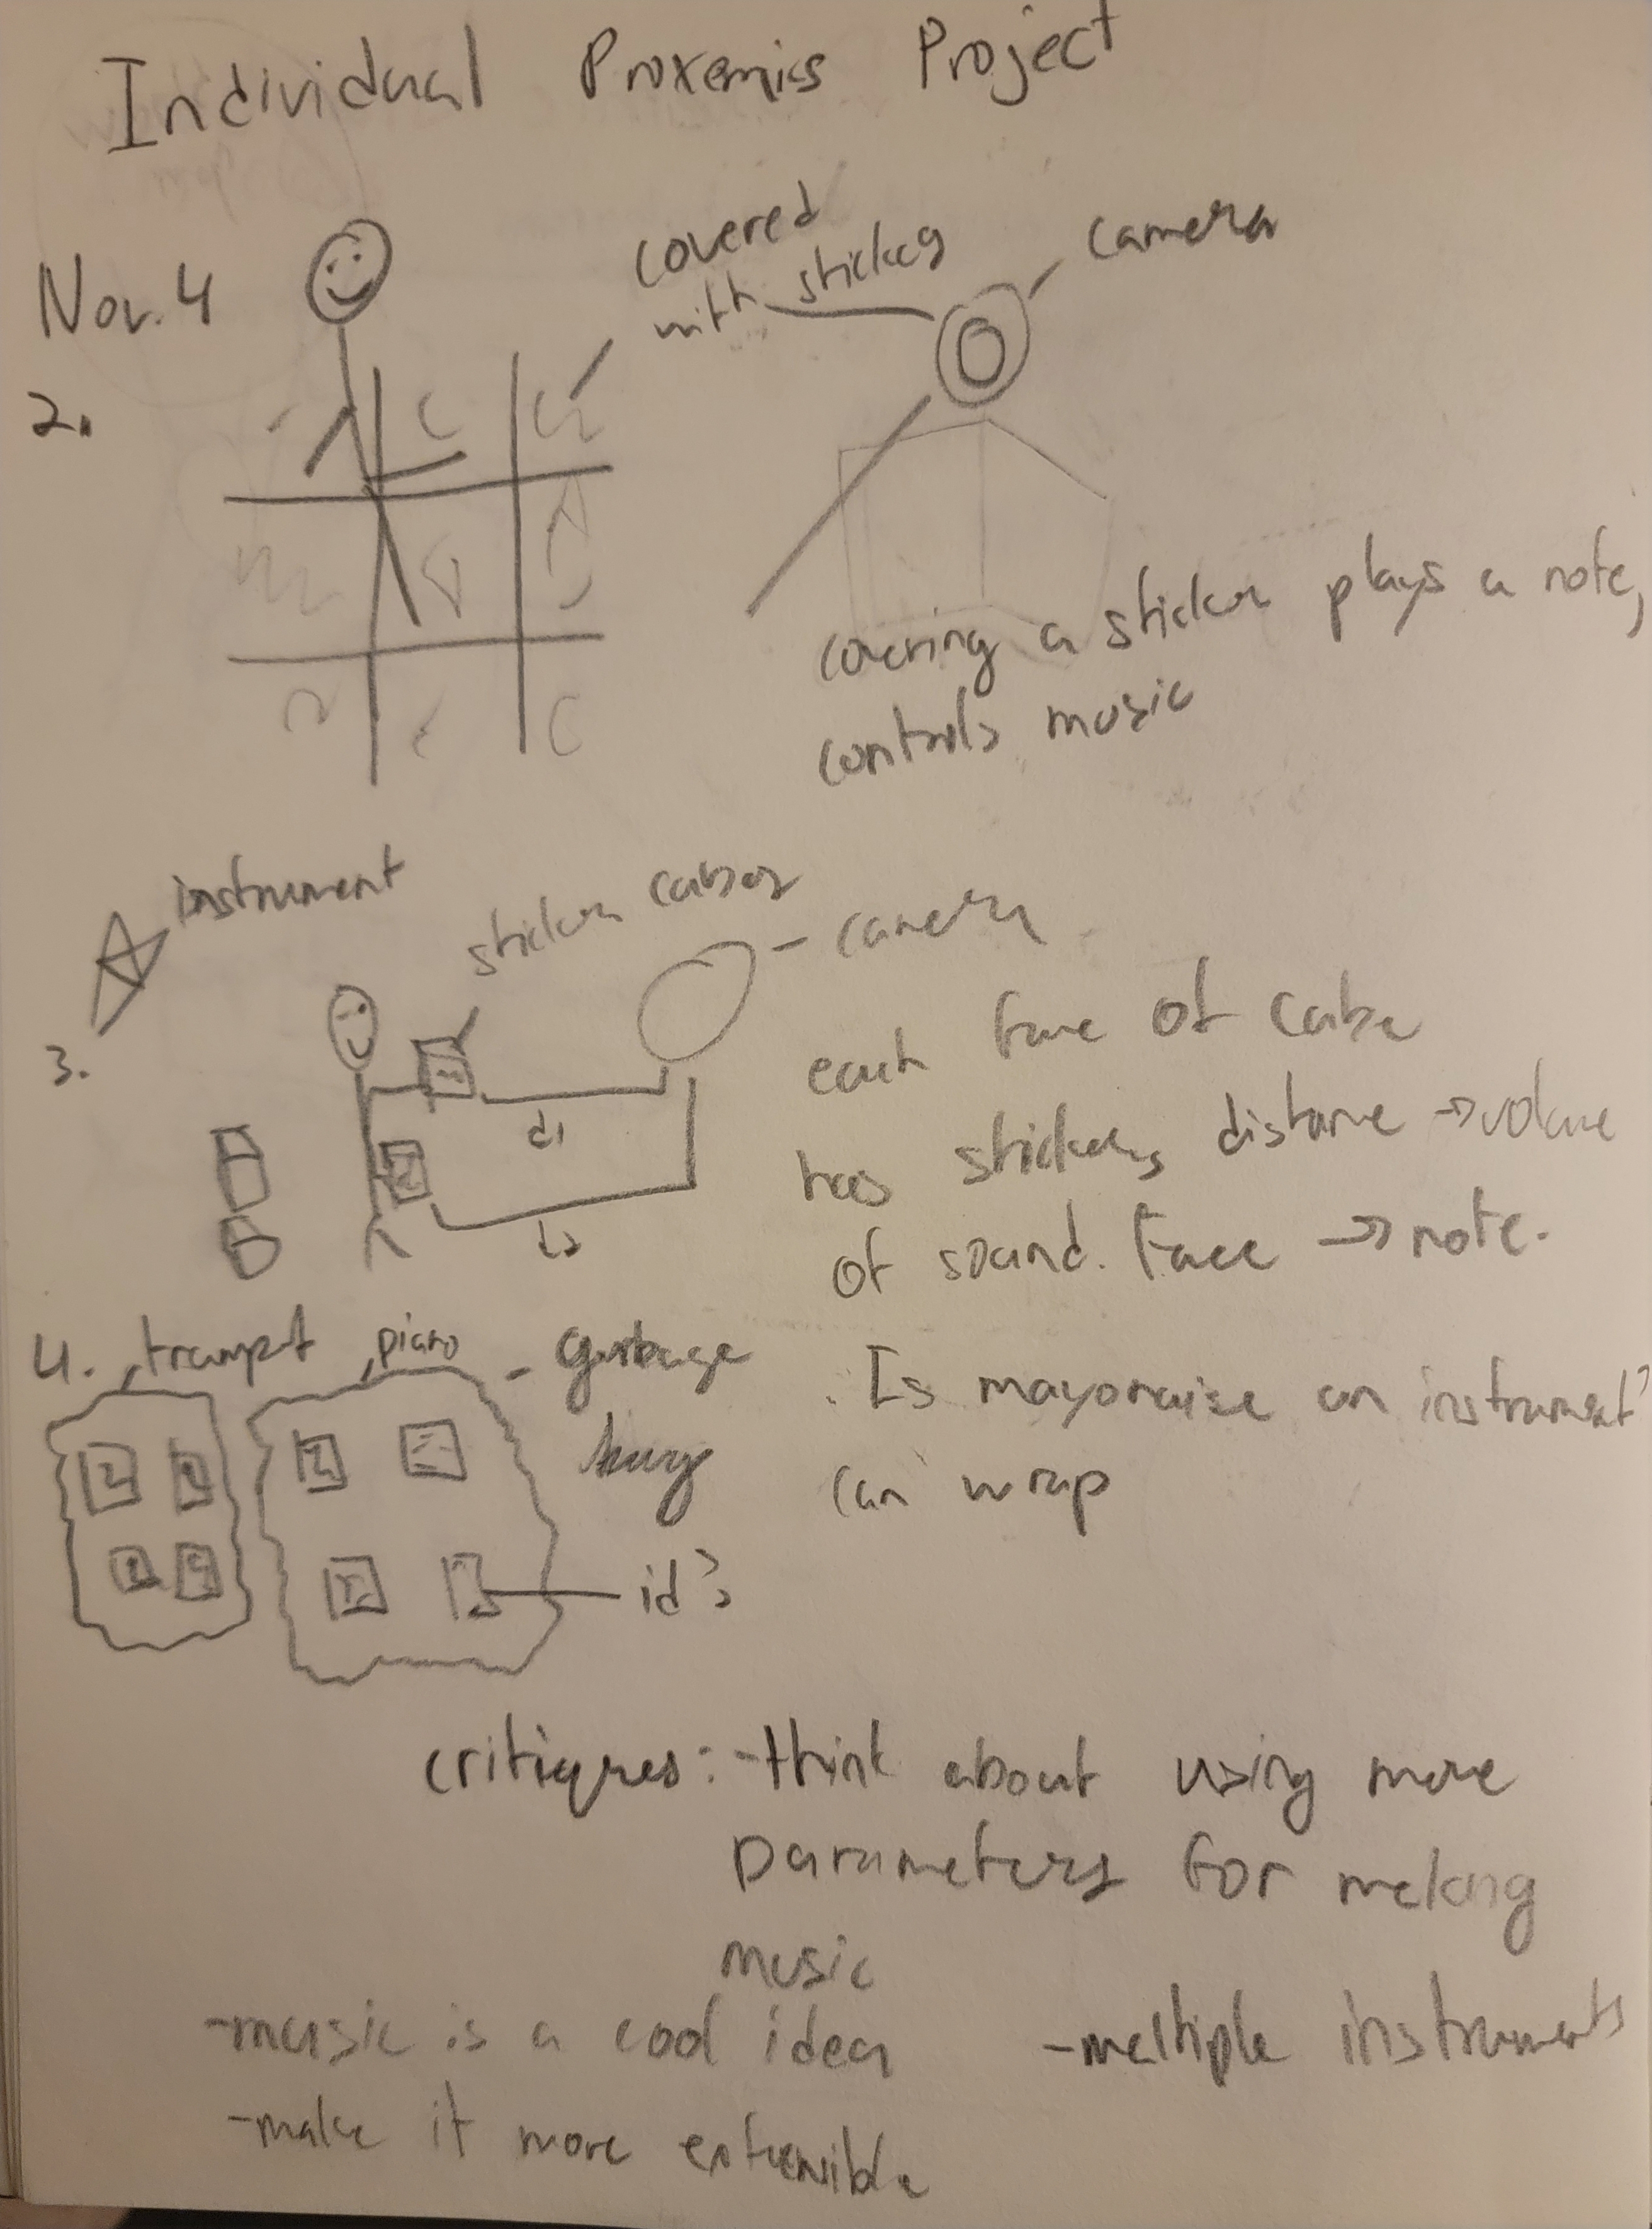 Individual Proxemics Project
Nov. 4
2.
covered
with stickers
camera
covering a sticker plays a note,
controls music
instrument
3.
sticker cubes
camera
d1
d2
each face of cube
has stickers, distance → volume
of sound. Face → note.
4. trumpet, piano - garbage
bag
. Is mayonaise an instrument?
can wrap
id's
critiques: - think about using more
parameters for making
music
- music is a cool idea
- multiple instruments
- make it more extensible